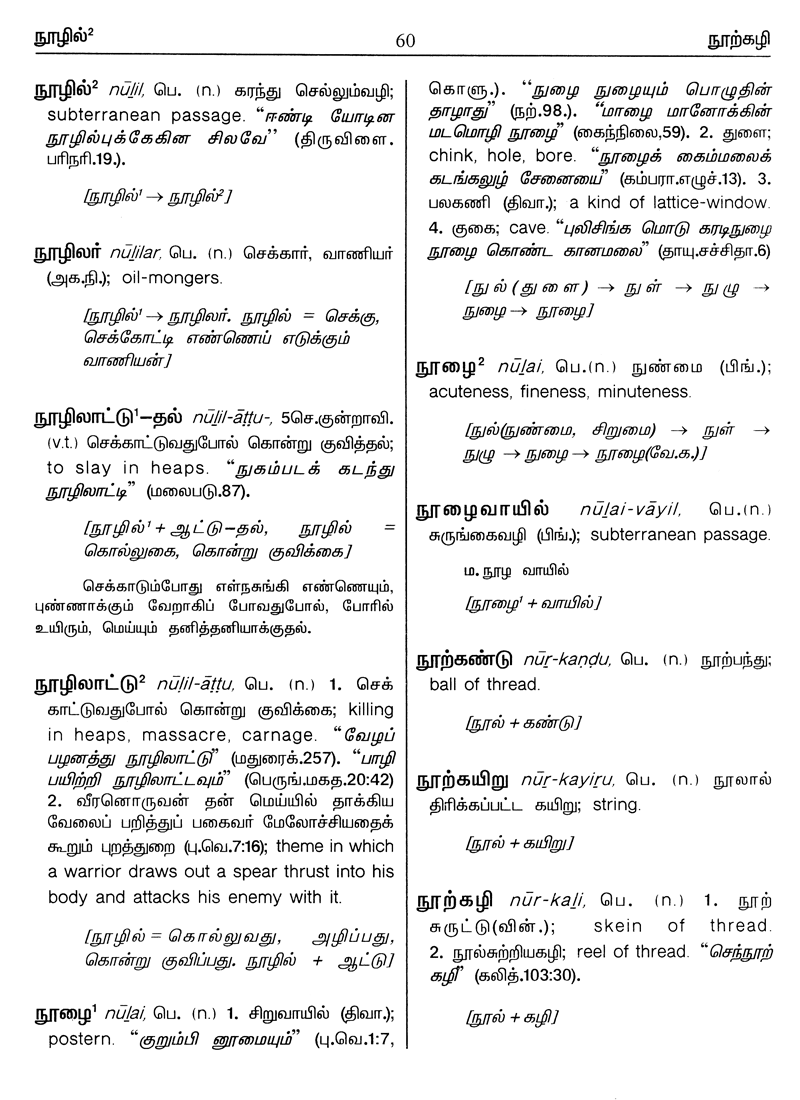 நூழில்² 60 நூற்கழி
நூழில்² nūḻil, பெ. (n.) கரந்து செல்லும்வழி;
subterranean passage. “ஈண்டி யோடின
நூழில்புக்கேகின சிலவே” (திருவிளை.
பரிநரி.19.).
[நூழில்¹ → நூழில்²]
நூழிலர் nūḻilar, பெ. (n.) செக்கார், வாணியர்
(அக.நி.); oil-mongers.
[நூழில்¹ → நூழிலர். நூழில் = செக்கு,
செக்கோட்டி எண்ணெய் எடுக்கும்
வாணியன்]
நூழிலாட்டு¹–தல் nūḻil-āṭṭu-, 5செ.குன்றாவி.
(v.t.) செக்காட்டுவதுபோல் கொன்று குவித்தல்;
to slay in heaps. “நுகம்படக் கடந்து
நூழிலாட்டி” (மலைபடு.87).
[நூழில்¹ + ஆட்டு–தல், நூழில் =
கொல்லுகை, கொன்று குவிக்கை]
செக்காடும்போது எள்நசுங்கி எண்ணெயும்,
புண்ணாக்கும் வேறாகிப் போவதுபோல், போரில்
உயிரும், மெய்யும் தனித்தனியாக்குதல்.
நூழிலாட்டு² nūḻil-āṭṭu, பெ. (n.) 1. செக்
காட்டுவதுபோல் கொன்று குவிக்கை; killing
in heaps, massacre, carnage. “வேழப்
பழனத்து நூழிலாட்டு” (மதுரைக்.257). “பாழி
பயிற்றி நூழிலாட்டவும்” (பெருங்.மகத.20:42)
2. வீரனொருவன் தன் மெய்யில் தாக்கிய
வேலைப் பறித்துப் பகைவர் மேலோச்சியதைக்
கூறும் புறத்துறை (பு.வெ.7:16); theme in which
a warrior draws out a spear thrust into his
body and attacks his enemy with it.
[நூழில் = கொல்லுவது, அழிப்பது,
கொன்று குவிப்பது. நூழில் + ஆட்டு]
நூழை¹ nūḻai, பெ. (n.) 1. சிறுவாயில் (திவா.);
postern. “குறும்பி னூமையும்” (பு.வெ.1:7,
கொளு.). “நுழை நுழையும் பொழுதின்
தாழாது” (நற்.98.). “மாழை மானோக்கின்
மடமொழி நூழை” (கைந்நிலை,59). 2. துளை;
chink, hole, bore. “நூழைக் கைம்மலைக்
கடங்கலுழ் சேனையை” (கம்பரா.எழுச்.13). 3.
பலகணி (திவா.); a kind of lattice-window.
4. குகை; cave. “புலிசிங்க மொடு கரடிநுழை
நூழை கொண்ட கானமலை” (தாயு.சச்சிதா.6)
[நுல் (துளை) → நுள் → நுழு →
நுழை → நூழை]
நூழை² nūḻai, பெ.(n.) நுண்மை (பிங்.);
acuteness, fineness, minuteness.
[நுல்(நுண்மை, சிறுமை) → நுள் →
நுழு → நுழை → நூழை(வே.க.)]
நூழைவாயில் nūḻai-vāyil, பெ.(n.)
சுருங்கைவழி (பிங்.); subterranean passage.
ம. நூழ வாயில்
[நூழை¹ + வாயில்]
நூற்கண்டு nūṟ-kaṇḍu, பெ. (n.) நூற்பந்து;
ball of thread.
[நூல் + கண்டு]
நூற்கயிறு nūṟ-kayiṟu, பெ. (n.) நூலால்
திரிக்கப்பட்ட கயிறு; string.
[நூல் + கயிறு]
நூற்கழி nūṟ-kaḻi, பெ. (n.) 1. நூற்
சுருட்டு(வின்.); skein of thread.
2. நூல்சுற்றியகழி; reel of thread. “செந்நூற்
கழி” (கலித்.103:30).
[நூல் + கழி]